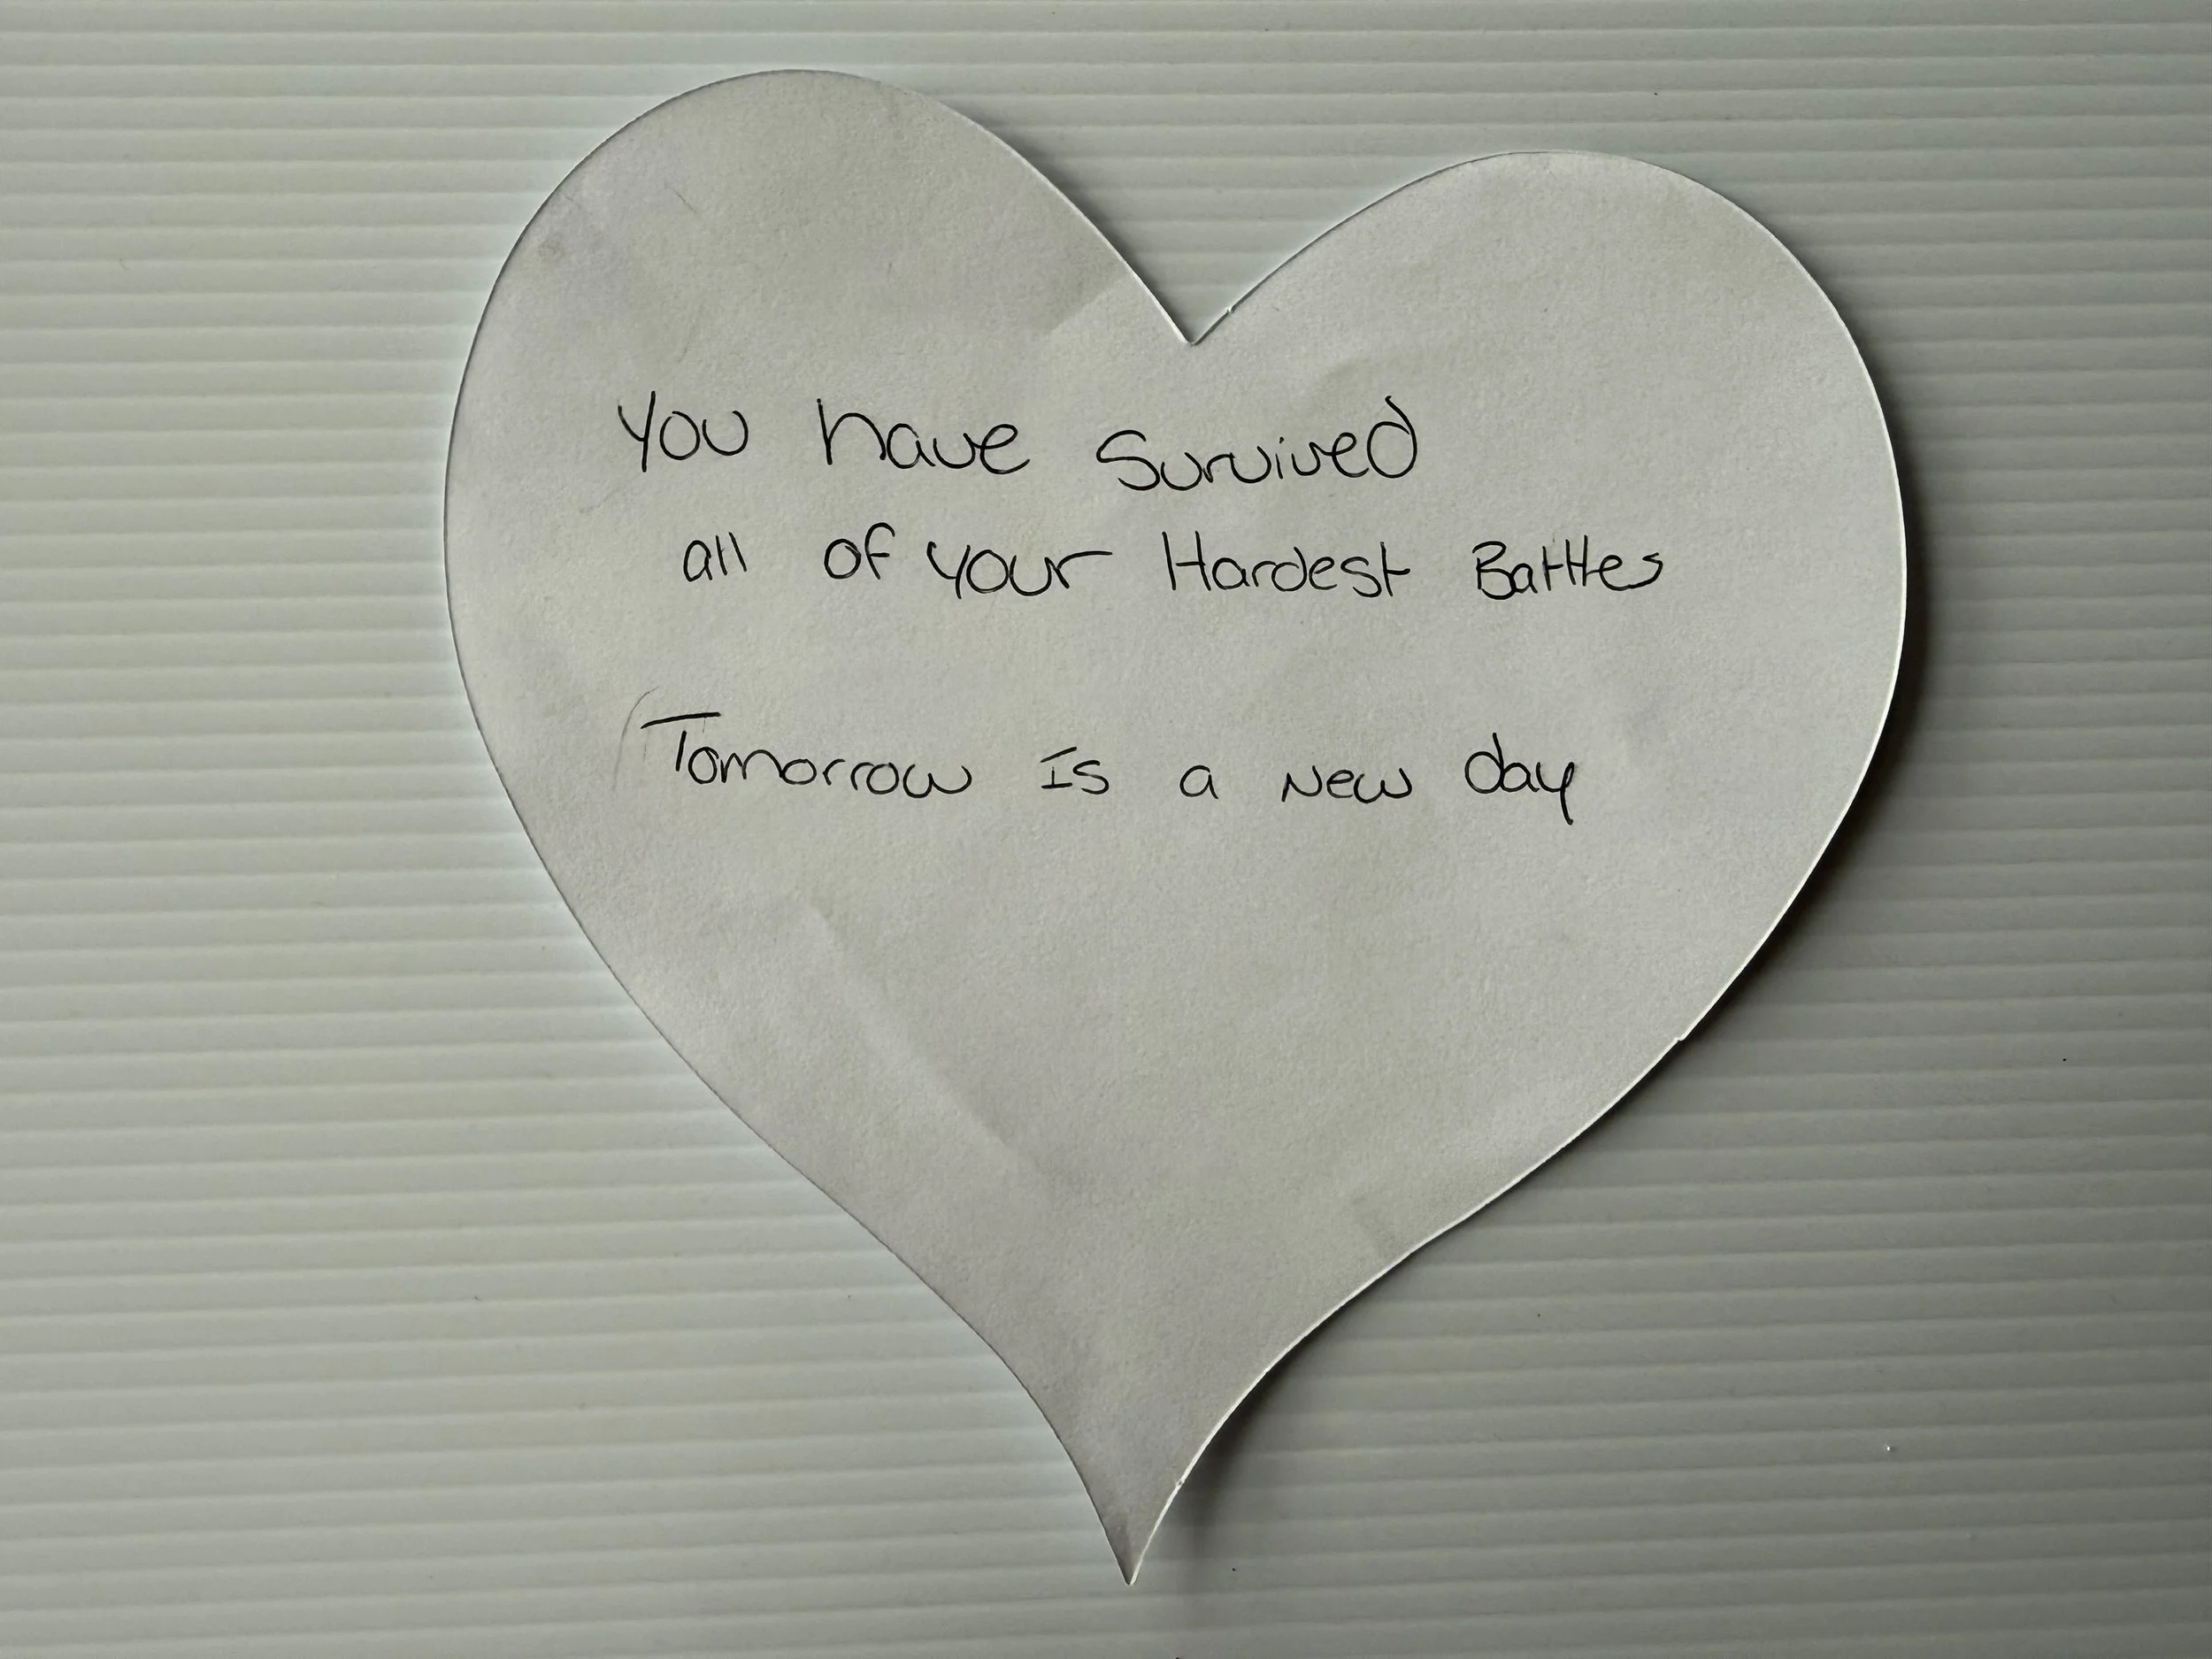 You have Survived
all of your Hardest Battles
Tomorrow Is a New day